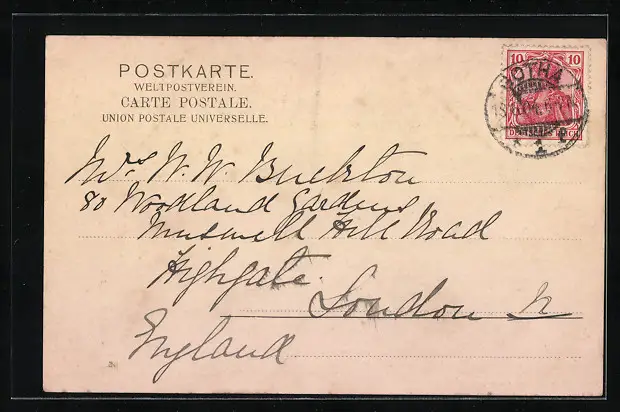 POSTKARTE.
WELTPOSTVEREIN.
CARTE POSTALE.
UNION POSTALE UNIVERSELLE.
10 10
DEUTSCHES REICH
GOTHA
1
Mrs. W. W. Buckton
80 Woodland Gardens
Muswell Hill Road
Highgate
London N
England